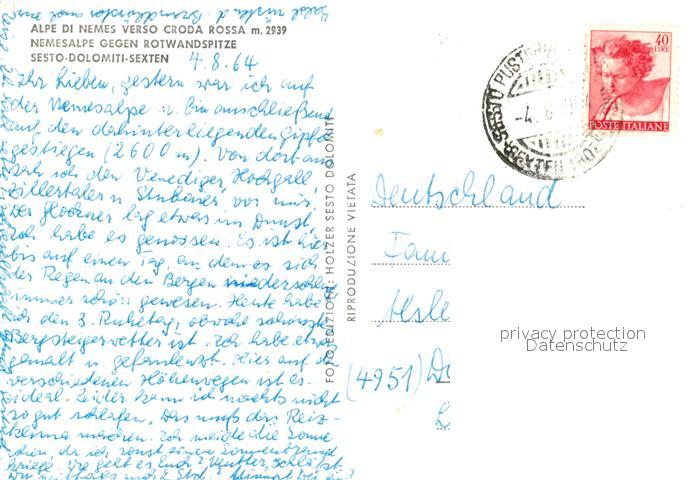 ALPE DI NEMES VERSO CRODA ROSSA m. 2939
NEMESALPE GEGEN ROTWANDSPITZE
SESTO-DOLOMITI-SEXTEN
4.8.64
Ihr Lieben, gestern war ich auf
der Nemesalpe u. bin anschließend
auf den dahinterliegenden Gipfel
gestiegen (2600 m). Von dort aus
sah ich den Venediger, Hochgall,
Zillertaler u. Stubaier, vor mir.
Der Glockner lag etwas im Dunst,
Ich habe es genossen. Es ist hier
bis auf einen Tag, an dem es sich
der Regen an den Bergen
immer schön gewesen. Heute habe
ich den 3. Ruhetag, obwohl schönstes
Bergsteigerwetter ist. Ich habe etwas
gemalt u. gefaulenzt. Hier auf d.
verschiedenen Höhenwegen ist es
ideal. Leider kann ich nachts nicht
so gut schlafen, das muß das Reiz-
klima machen. Ich meide die Sonne
schon, da ich sonst einen Sonnenbrand
kriege. Wie geht es Euch?
FOTO EDIZIONE: HOLZER SESTO DOLOMITI
RIPRODUZIONE VIETATA
40
LIRE
POSTE ITALIANE
SESTO PUST
-4.8
SEXTEN
Deutschland
Fam
(4951)
privacy protection
Datenschutz